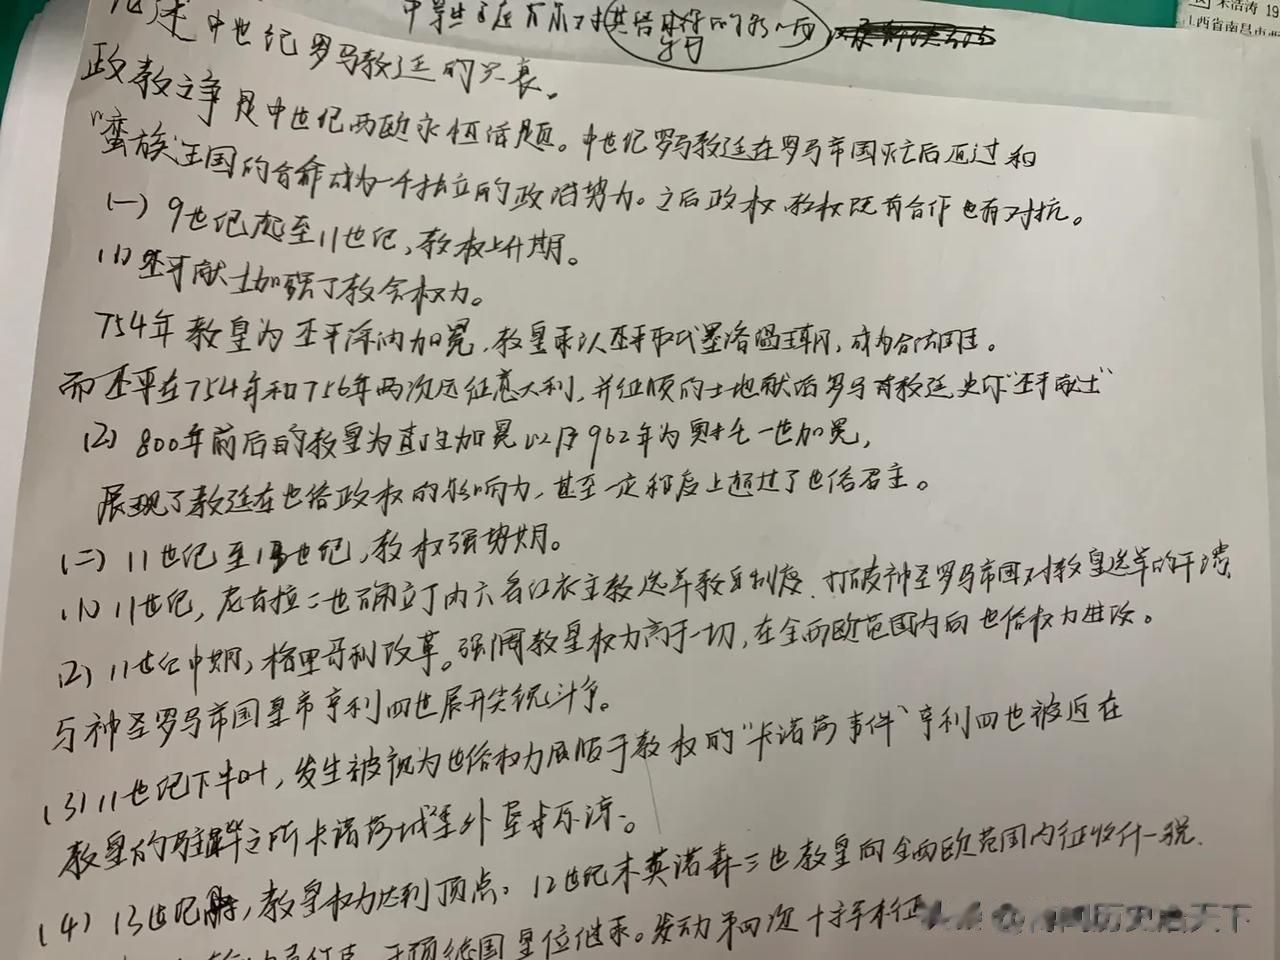 中学生 英语 学习的影响
宋浩涛 19
江西省南昌市西
述中世纪罗马教廷的兴衰。
政教之争是中世纪西欧永恒话题。中世纪罗马教廷在罗马帝国灭亡后通过和
“蛮族”王国的合作成为一个独立的政治势力。之后政权、教权既有合作也有对抗。
(一) 9世纪起至11世纪,教权上升期。
(1) 丕平献土加强了教会权力。
754年教皇为丕平涂油加冕,教皇承认丕平取代墨洛温王朝,成为合法国王。
而丕平在754年和756年两次远征意大利,并征服的土地献给罗马教廷史称“丕平献土”
(2) 800年前后的教皇为查理加冕以及962年为奥托一世加冕,
展现了教廷在世俗政权的影响力,甚至一定程度上超过了世俗君主。
(二) 11世纪至13世纪,教权强势期。
(1) 11世纪,尼古拉二世确立了由六名红衣主教选举教皇制度,打破神圣罗马帝国对教皇选举的干涉
(2) 11世纪中期,格里哥利改革。强调教皇权力高于一切,在全西欧范围内向世俗权力进攻。
与神圣罗马帝国皇帝亨利四世展开尖锐斗争。
(3) 11世纪下半叶,发生被视为世俗权力屈服于教权的“卡诺莎事件”亨利四世被迫在
教皇的驻跸之所卡诺莎城堡外
(4) 13世纪,教皇权力达到顶点。12世纪末英诺森三世教皇向全西欧范围内征收什一税.
干预德国皇位继承。发动第四次十字军东征
头条 @ 历史论天下